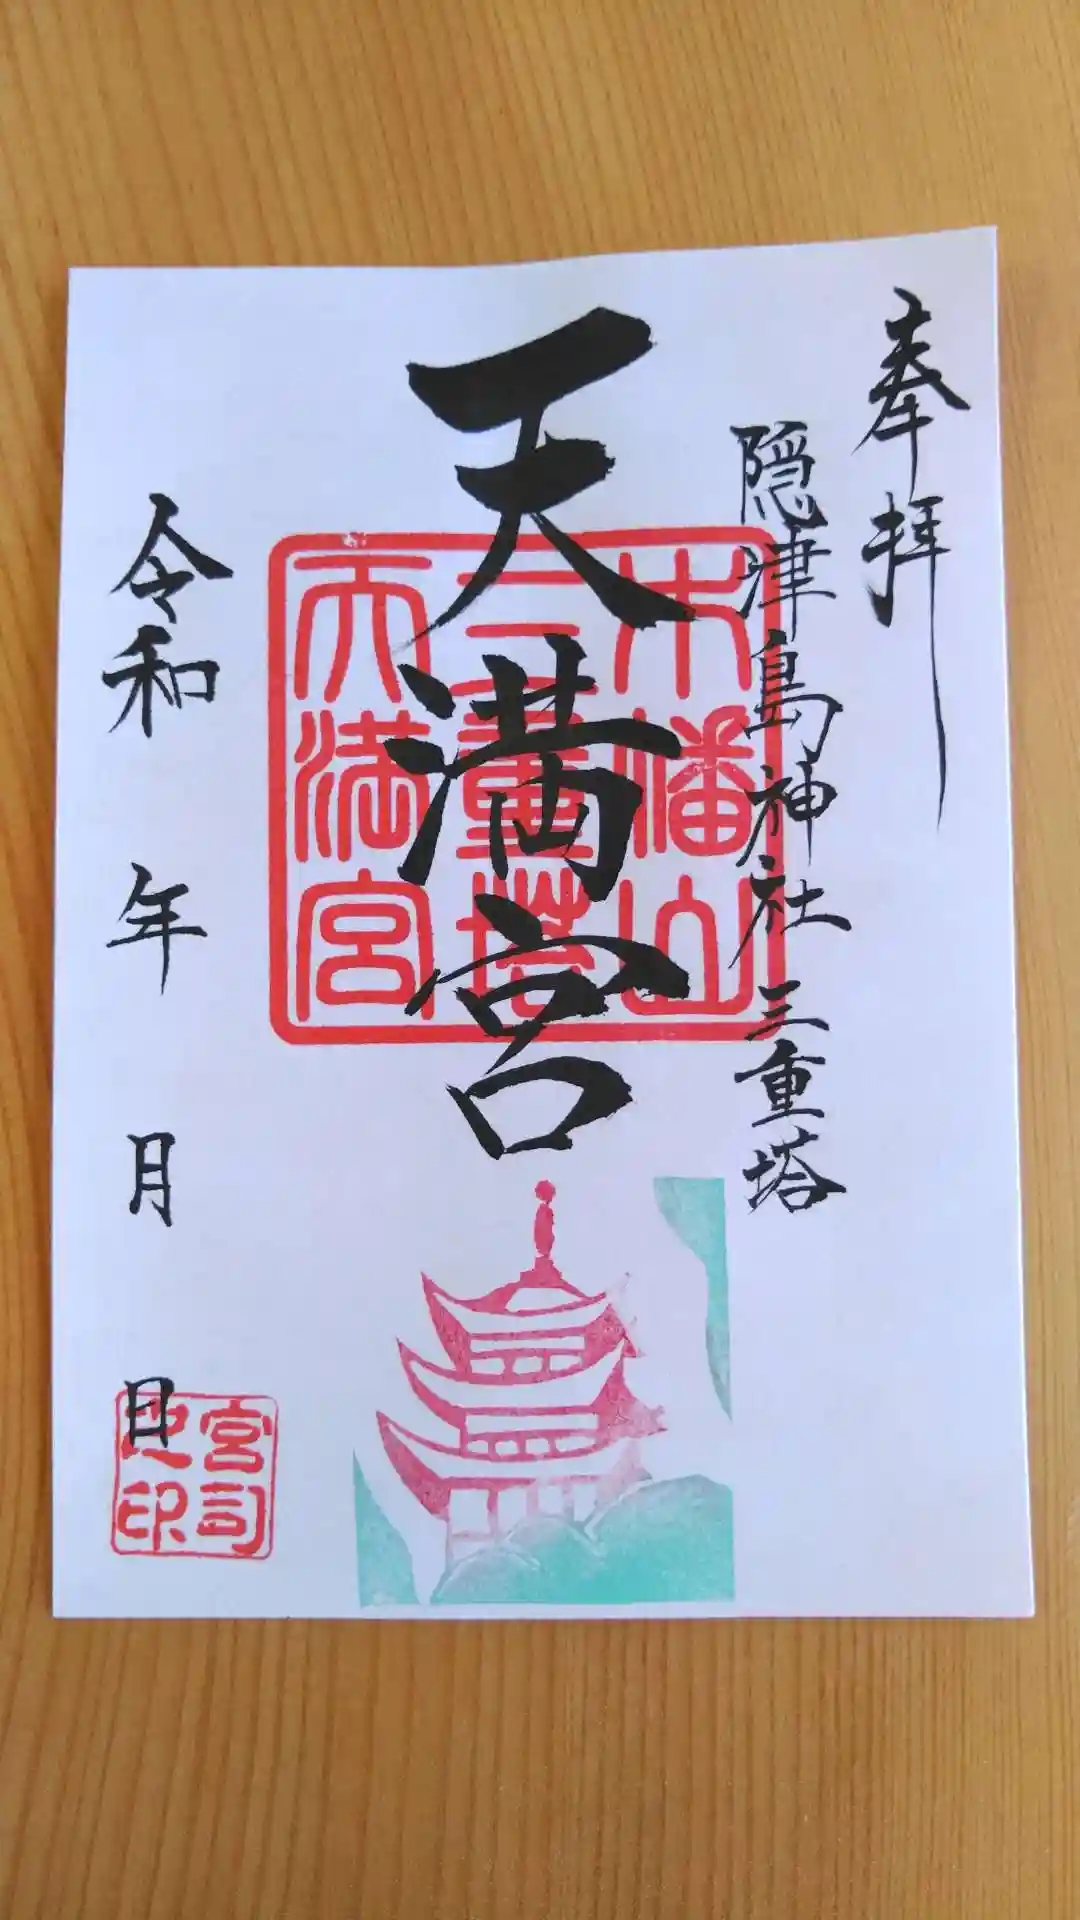 奉拝
隠津島神社 三重塔
天満宮
木幡山
三重塔
天満宮
令和 年 月 日
宮司
之印